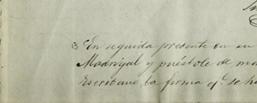 En seguida presente en su
Madrigal y puéstole de ma
Escribano, la forma qe. se ha